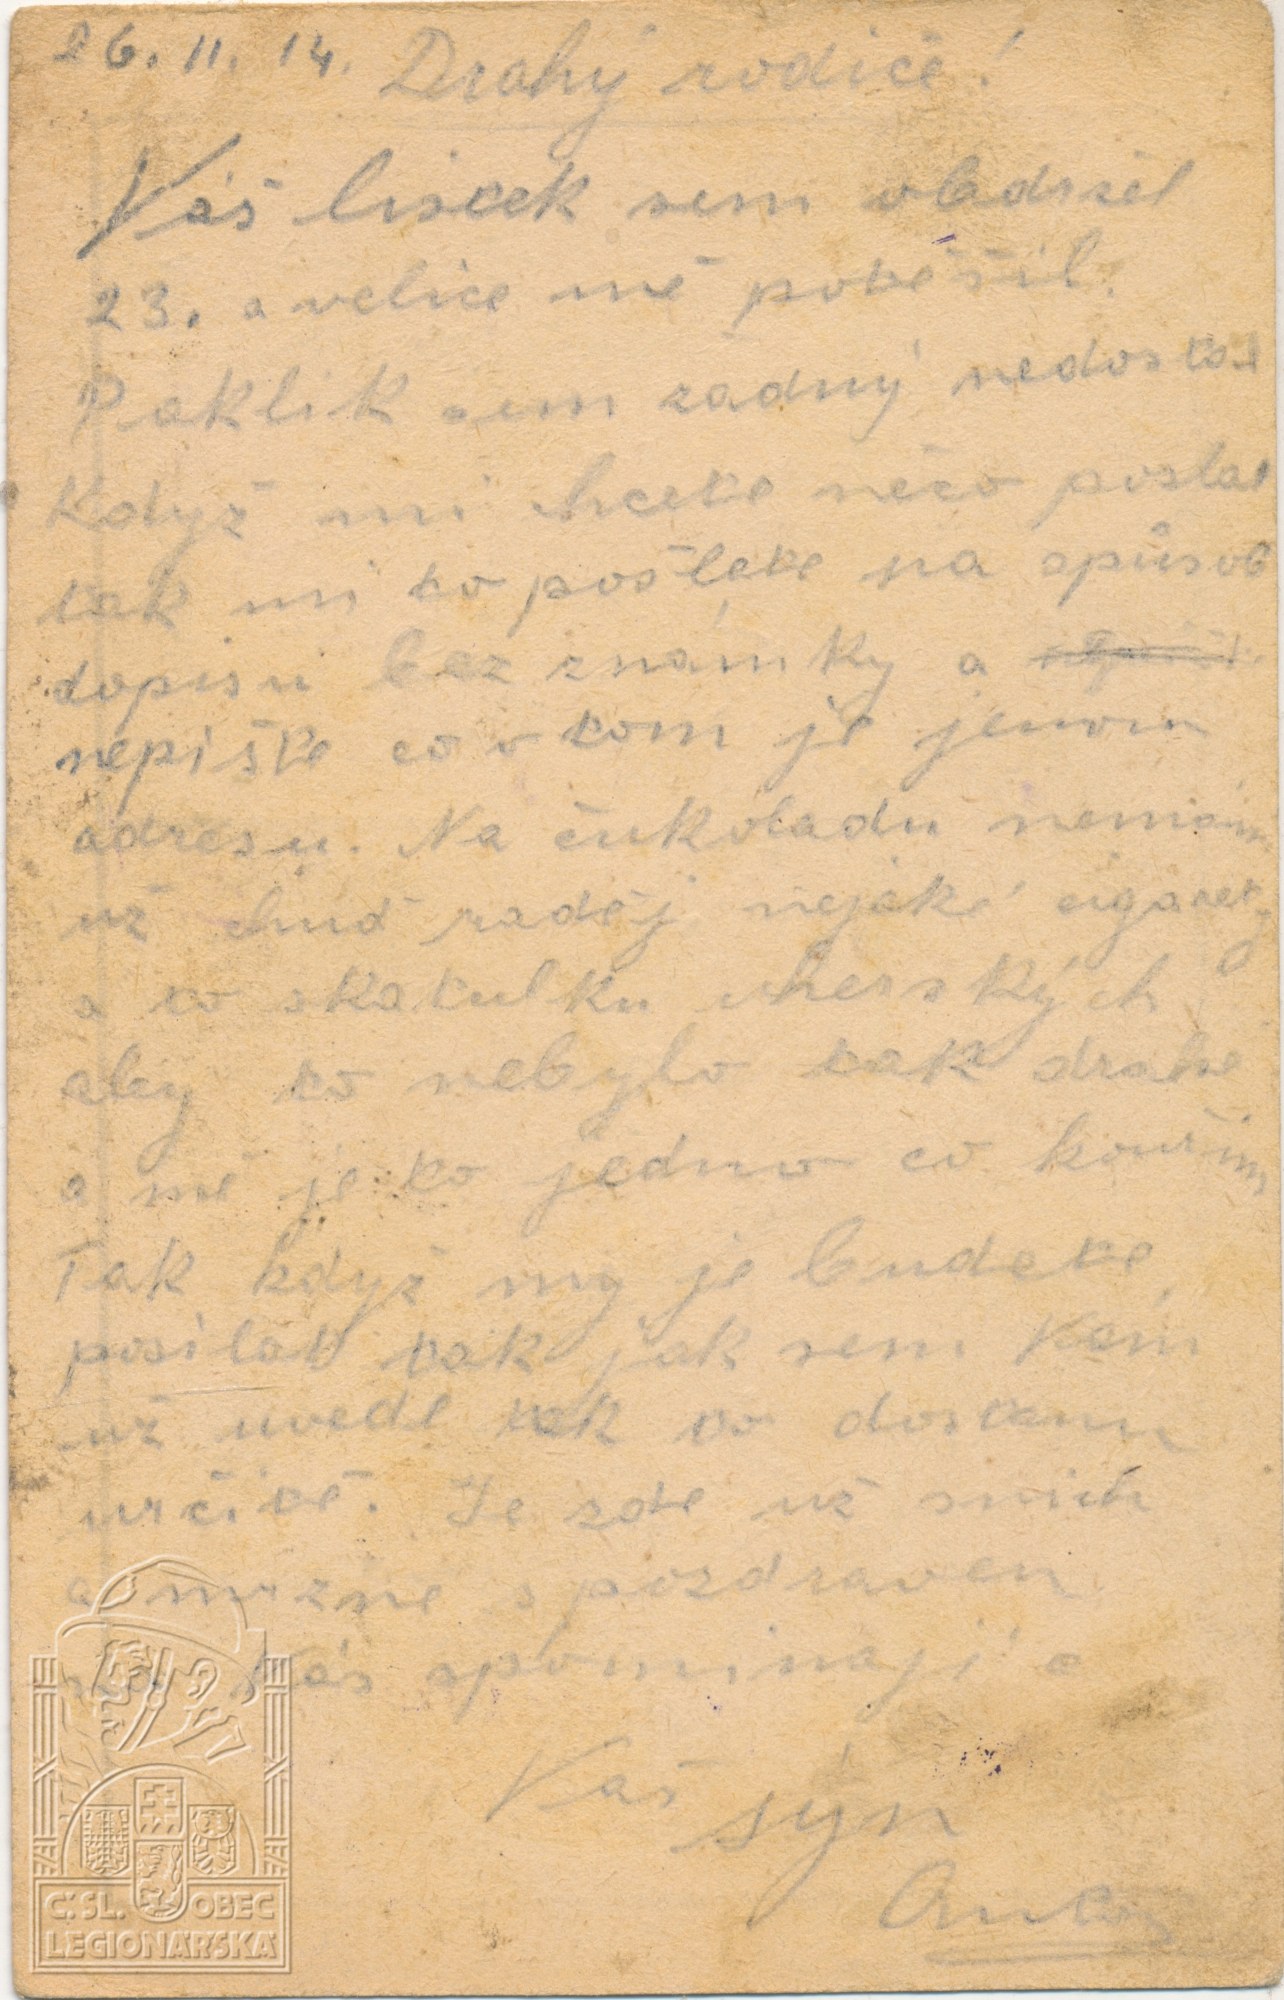 26. 11. 14. Drahý rodiče!
Váš lístek sem obdržel
23. a velice mě potěšil.
Paklík sem žadný nedostal
Když mi chcete něco poslat
tak mi to pošlete na spůsob
dopisu bez známky a
nepište co v tom je jenom
adresu. Na čukoladu nemám
už chuď raděj nejaké cigarety
a to skatulku uherských
aby to nebylo tak drahe
a mě je to jedno co kouřim
Tak když my je budete
posilat tak jak sem Vám
už uvedl tak to dostanu
určitě. Je zde už snich
a mrzne s pozdraven
na Vás spominají e
Váš syn
C.SL. OBEC
LEGIONÁŘSKÁ